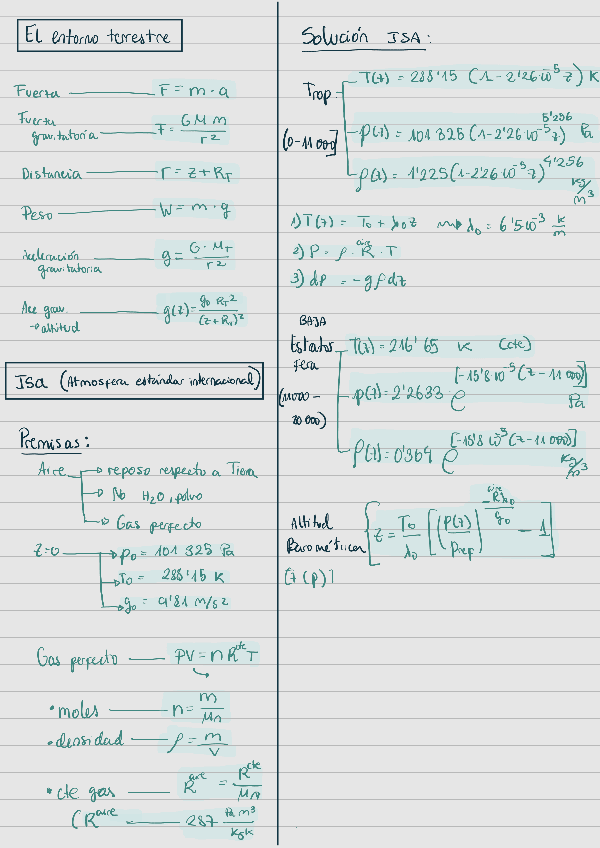 El entorno terrestre
Fuerza — F = m · a
Fuerza gravitatoria — F = G M m / r²
Distancia — r = z + R_T
Peso — W = m · g
Aceleración gravitatoria — g = G · M_T / r²
Ace grav. → altitud — g(z) = g₀ R_T² / (z + R_T)²
ISA (Atmosfera estándar internacional)
Premisas:
Aire → reposo respecto a Tierra
→ No H₂O, polvo
→ Gas perfecto
z=0 → p₀ = 101 325 Pa
→ T₀ = 288'15 K
→ g₀ = 9'81 m/s2
Gas perfecto — PV = n R^cte T
• moles — n = m / μn
• densidad — ρ = m / V
• cte gas — R^aire = R^cte / μn
( R^aire — 287 Pa m³ / kg k
Solución ISA:
Trop. (0-11 000]
T(z) = 288'15 (1 - 2'26·10⁻⁵ z) K
p(z) = 101 325 (1-2'26·10⁻⁵ z)^5'256 Pa
ρ(z) = 1'225 (1-2'26·10⁻⁵ z)^4'256 kg/m³
1) T(z) = T₀ + λ₀ z → λ₀ = 6'5·10⁻³ k/m
2) P = ρ · R^aire · T
3) dp = -g ρ dz
BAJA
Estratosfera (11000 - 20 000)
T(z) = 216'65 K (cte)
p(z) = 2'2633 e^[-15'8·10⁻⁵ (z - 11 000)] Pa
ρ(z) = 0'364 e^[-15'8·10⁻⁵ (z - 11 000)] kg/m³
Altitud Barométrica [z (p)]
z = T₀/λ₀ [ (p(z)/p_ref)^(-R^aire λ₀/g₀) - 1 ]